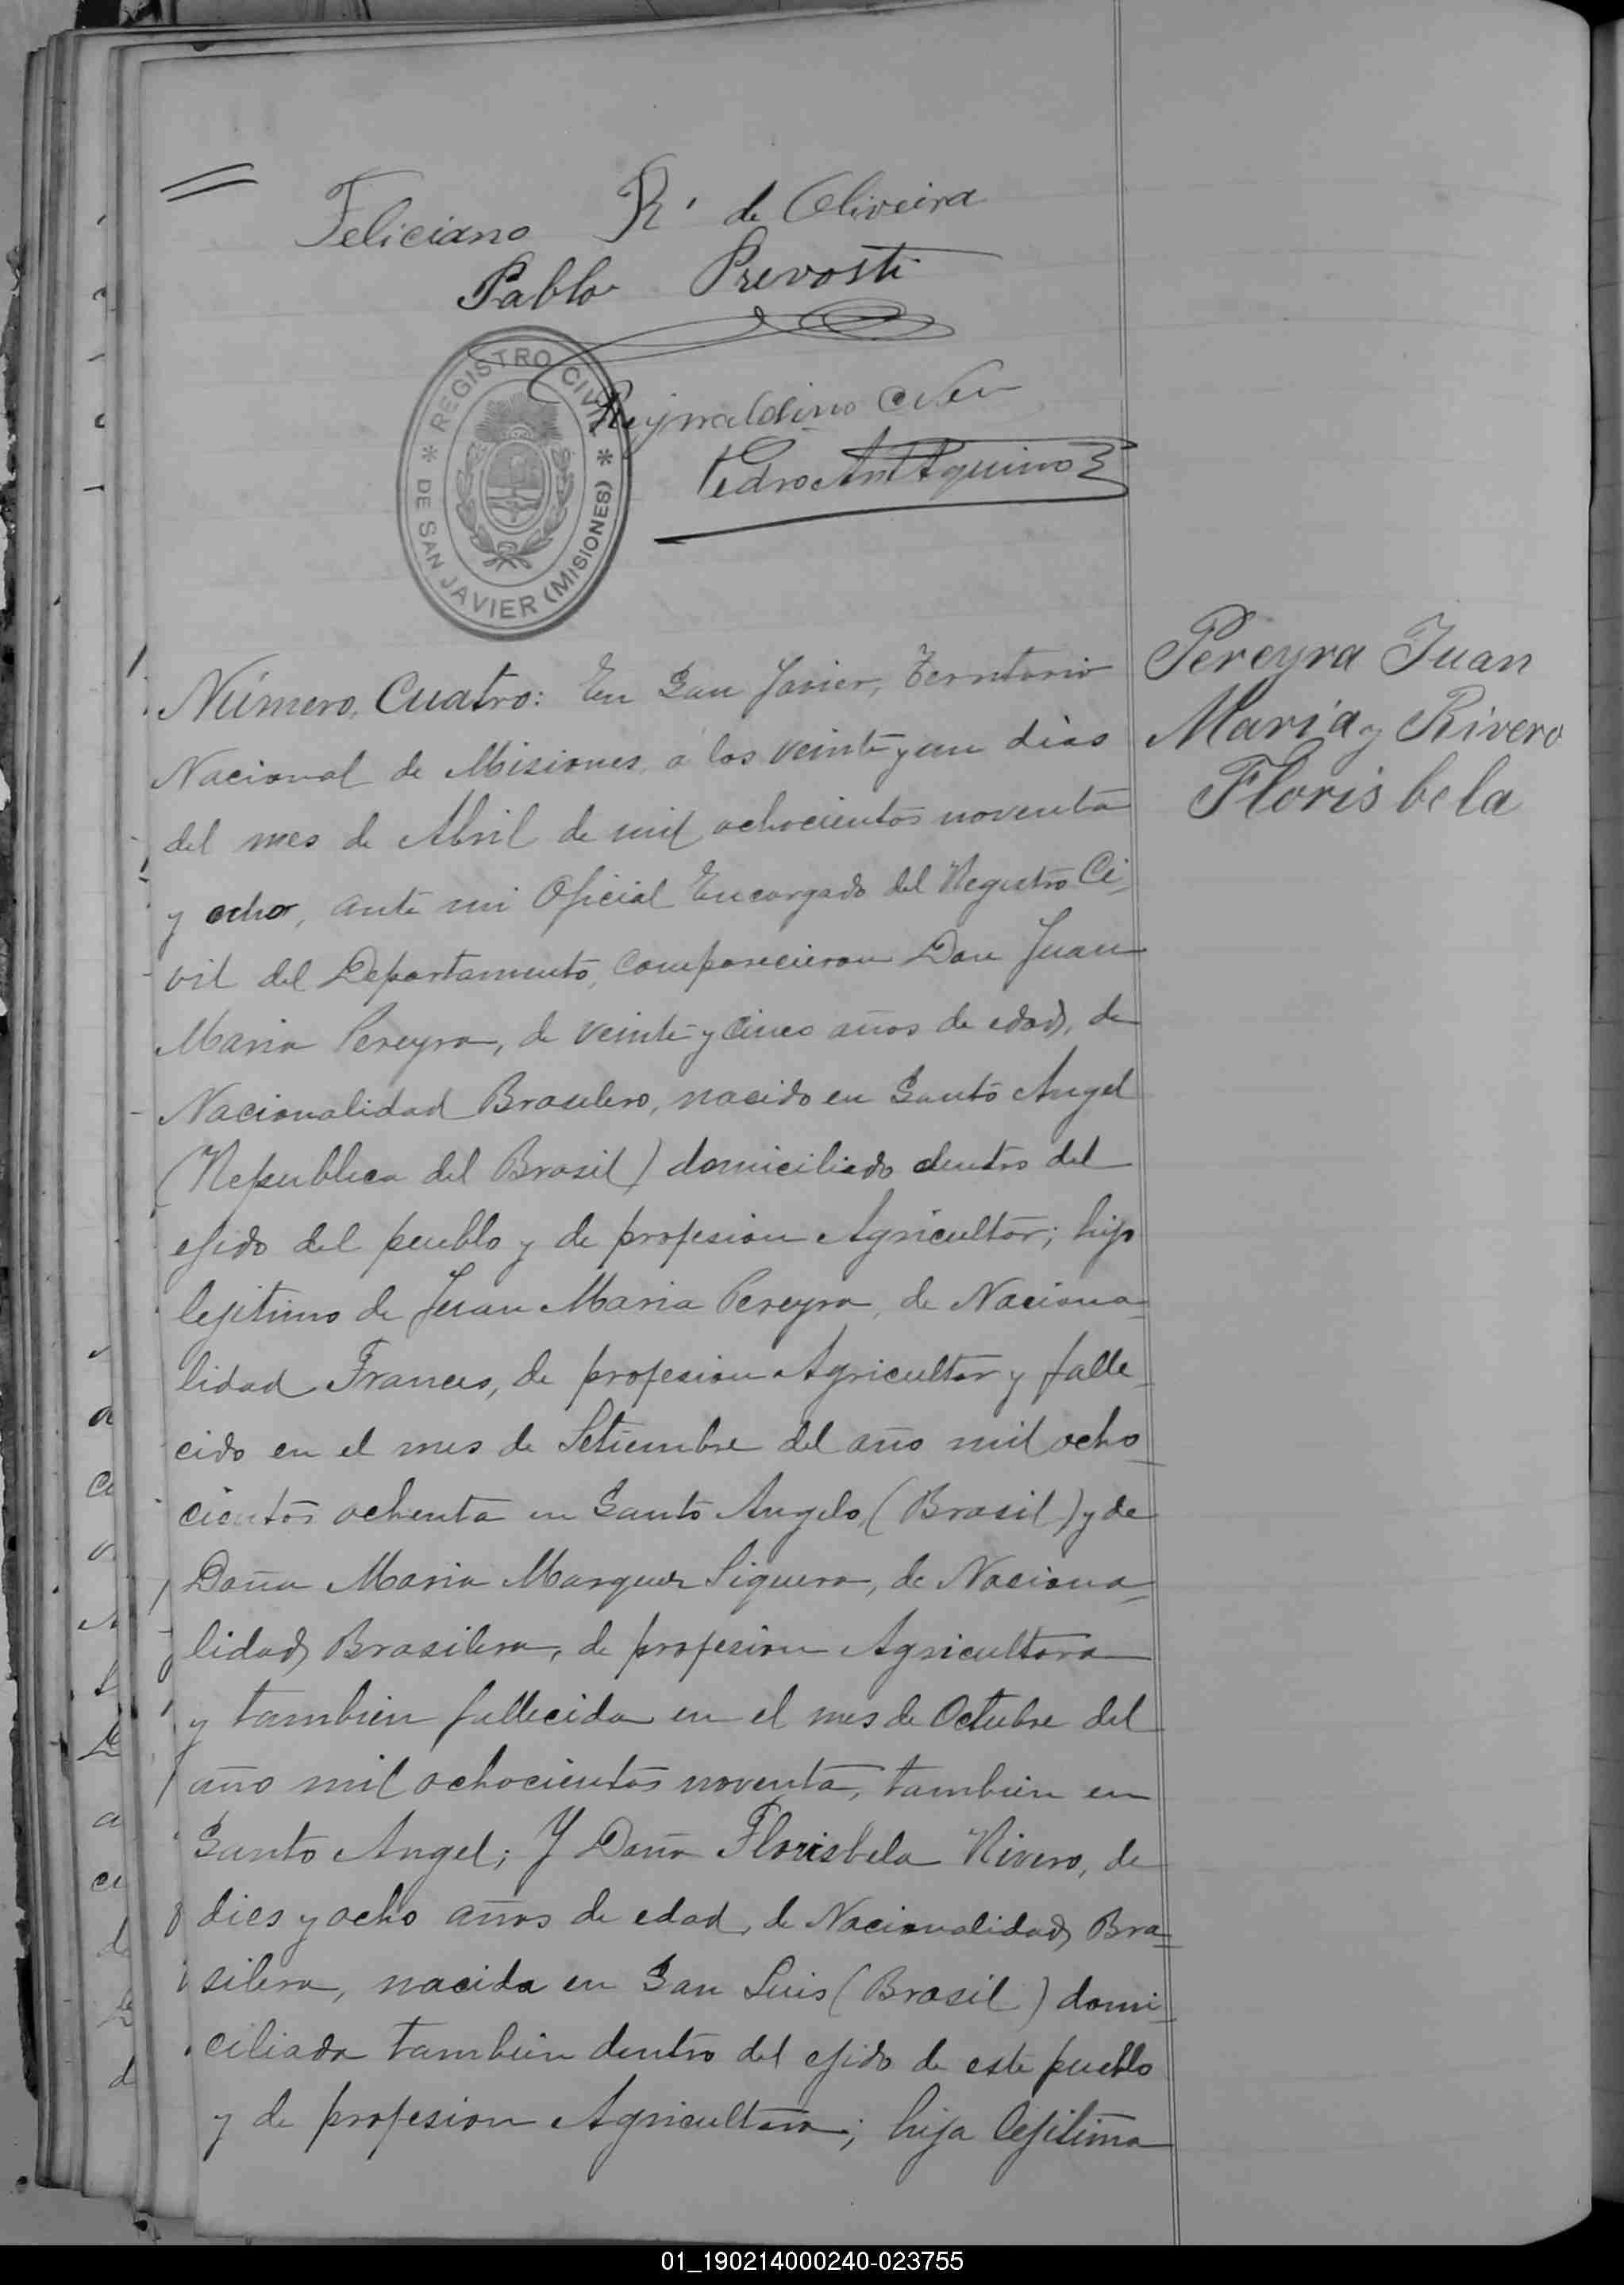 Feliciano R. de Oliveira
Pablo Prevosti
REGISTRO CIVIL * DE SAN JAVIER (MISIONES) *
Reynaldino
Pedro Ant Aquino
Número, Cuatro: En San Javier, Territorio
Nacional de Misiones, á los veinte y un dias
del mes de Abril de mil ochocientos noventa
y ocho, ante mi Oficial Encargado del Registro Ci-
vil del Departamento, comparecieron Don Juan
Maria Pereyra, de veinte y cinco años de edad, de
Nacionalidad Brasilero, nacido en Santo Angel
(Republica del Brasil) domiciliado dentro del
ejido del pueblo y de profesion Agricultor; hijo
lejitimo de Juan Maria Pereyra, de Naciona-
lidad Frances, de profesion Agricultor y falle-
cido en el mes de Setiembre del año mil ocho-
cientos ochenta en Santo Angelo, (Brasil) y de
Doña Maria Marques Siquera, de Naciona-
lidad Brasilera, de profesion Agricultora
y tambien fallecida en el mes de Octubre del
año mil ochocientos noventa, tambien en
Santo Angel; Y Doña Florisbela Rivero, de
dies y ocho años de edad, de Nacionalidad Bra-
silera, nacida en San Luis (Brasil) domi-
ciliada tambien dentro del ejido de este pueblo
y de profesion Agricultora; hija lejitima
Pereyra Juan
Maria y Rivero
Florisbela
01_190214000240-023755